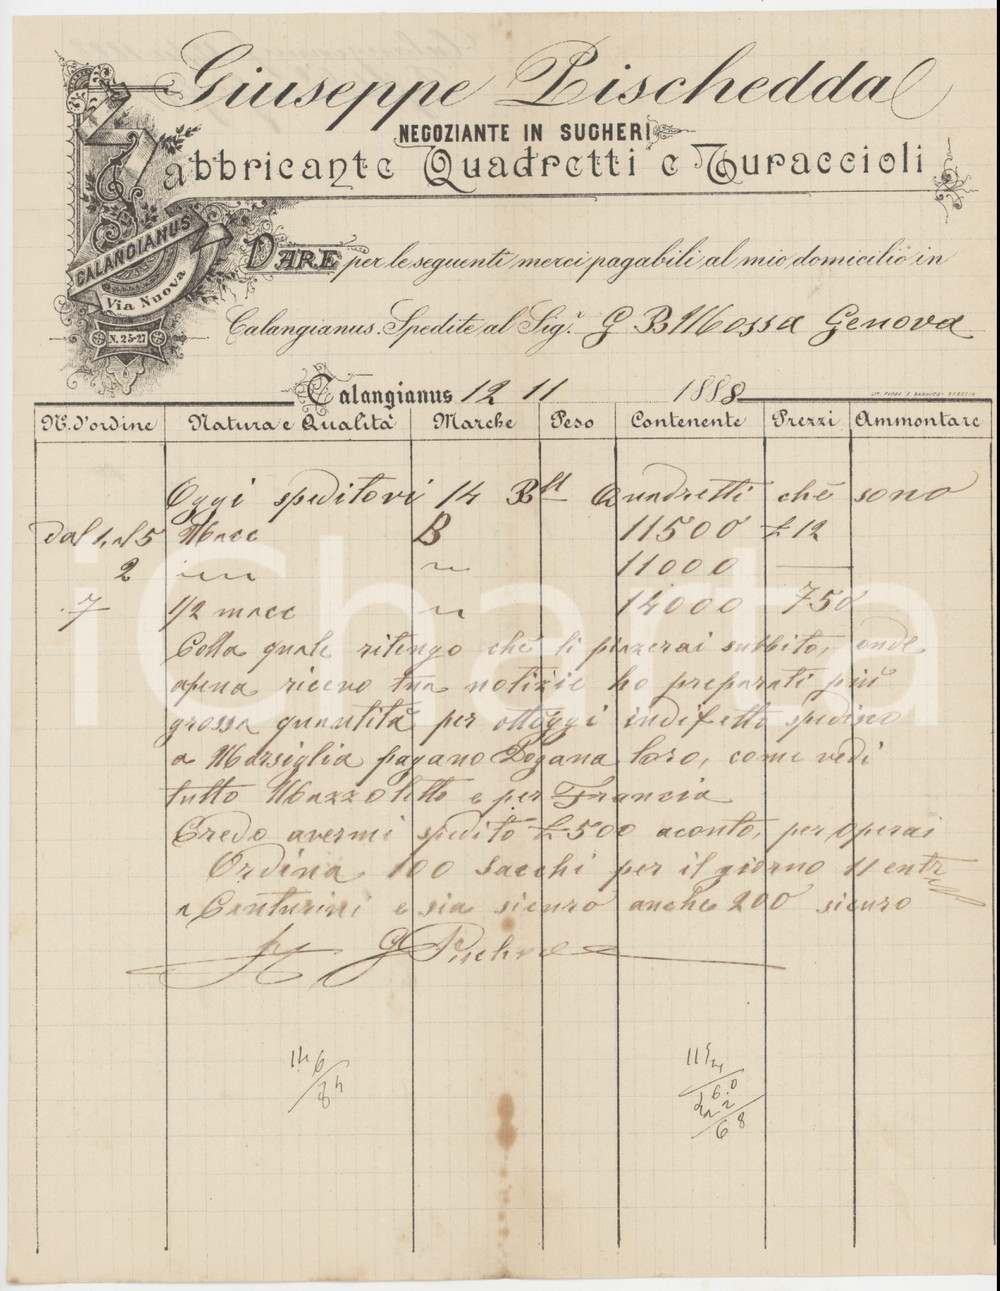 Giuseppe Pischedda
NEGOZIANTE IN SUGHERI
Fabbricante Quadretti e Turaccioli
CALANGIANUS
Via Nuova
N. 25-27
DARE per le seguenti merci pagabili al mio domicilio in
Calangianus. Spedite al Sig.r G B Mossa Genova
Calangianus 12 11 1888
N.º d'ordine Natura e Qualità Marche Peso Contenente Prezzi Ammontare
Oggi speditovi 14 Blt Quadretti che sono
dal 1 al 5 Macc B 11500 £ 12
2 11000
7 1/2 macc 14000 750
Colla quale ritengo che li piazerai subbito, onde
apena ricevo tua notizie ho preparati più
grossa quantità per ottoggi indifetto spedisco
a Marsiglia pagano Dogana loro, come vedi
tutto Mazzoletto e per Francia
Credo avermi spedito £ 500 aconto, per operai
Ordina 100 sacchi per il giorno 11 entr
a Centurini e sia sicuro anche 200 sicuro
G Pischedda
iCharta